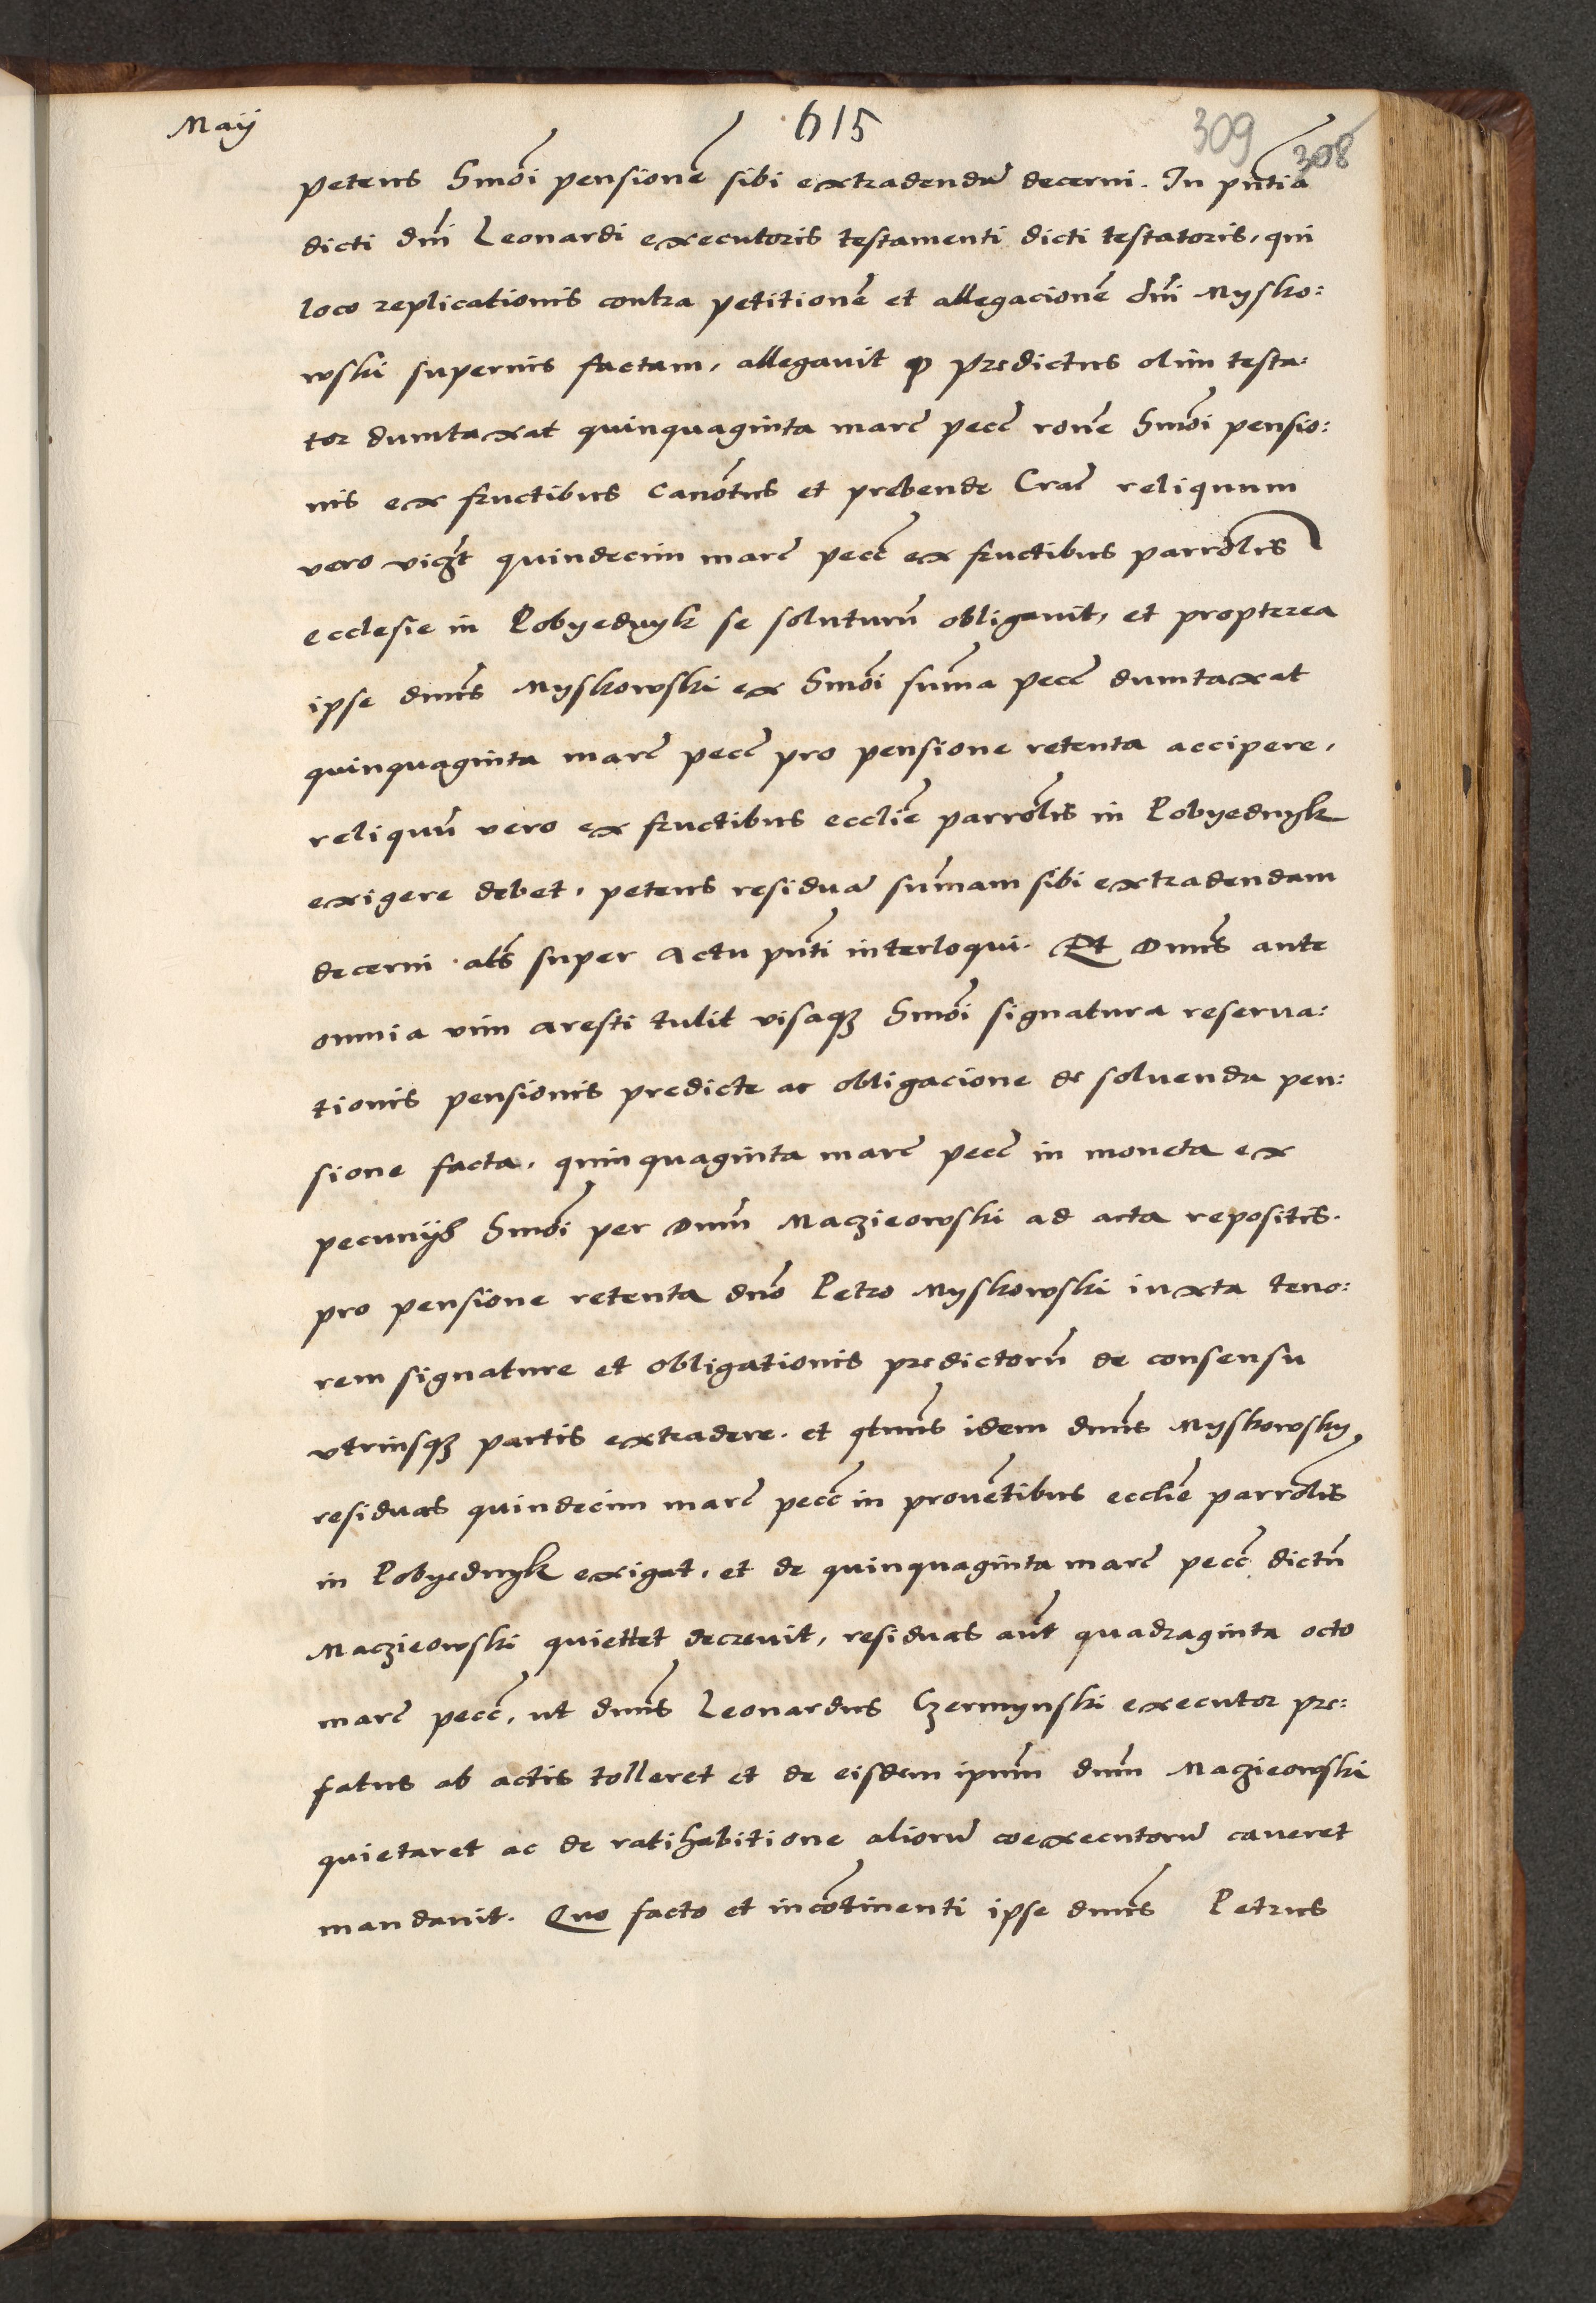 Maÿ
615
309
308
petens hmōi pensionē sibi extradendā decerni. In pn̄tia
dicti dn̄i Leonardi executoris testamenti dicti testatoris, qui
loco replicationis contra petitionē et allegacionē dn̄i Mysko:
wski superius factam, allegauit ꝙ predictus olim testa:
tor dumtaxat quinquaginta marc̄ pecc̄ ron̄e hmōi pensio:
nis ex fructibus Canōtus et prebende Crac̄ reliquum
vero vigt̄ quindecim marc̄ pecc̄ ex fructibus parrōlis
ecclesie in Pobyednyk se soluturū obligauit, et propterea
ipse dnūs Myskowski ex hmōi sum̄a pecc̄ dumtaxat
quinquaginta marc̄ pecc̄ pro pensione retenta accipere,
reliquū vero ex fructibus eccliē parrōlis in Pobyednyk
exigere debet, petens residuā sum̄am sibi extradendam
decerni als̄ super actu pn̄ti interloqui. Et Dnūs ante
omnia vim aresti tulit visaqꝫ hmōi signatura reserua:
tionis pensionis predicte ac obligacione de soluenda pen:
sione facta, quinquaginta marc̄ pecc̄ in moneta ex
pecunijs hmōi per Dnūm Maczieowski ad acta repositis.
pro pensione retenta dnō Petro Myskowski iuxta teno:
rem signature et obligationis predictorū de consensu
vtriusqꝫ partis extradere. et qt̄nus idem dnūs Myskowsky
residuas quindecim marc̄ pecc̄ in prouētibus eccliē parrōlis
in Pobyednyk exigat, et de quinquaginta marc̄ pecc̄ dictū
Maczieowski quiettet decreuit, residuas aūt quadraginta octo
marc̄ pecc̄, ut dnūs Leonardus Czermynski executor pre:
fatus ab actis tolleret et de eisdem ipsūm dnūm Maczieowski
quietaret ac de ratihabitione aliorū coexecutorū caueret
mandauit. Quo facto et incōtinenti ipse dnūs Petrus